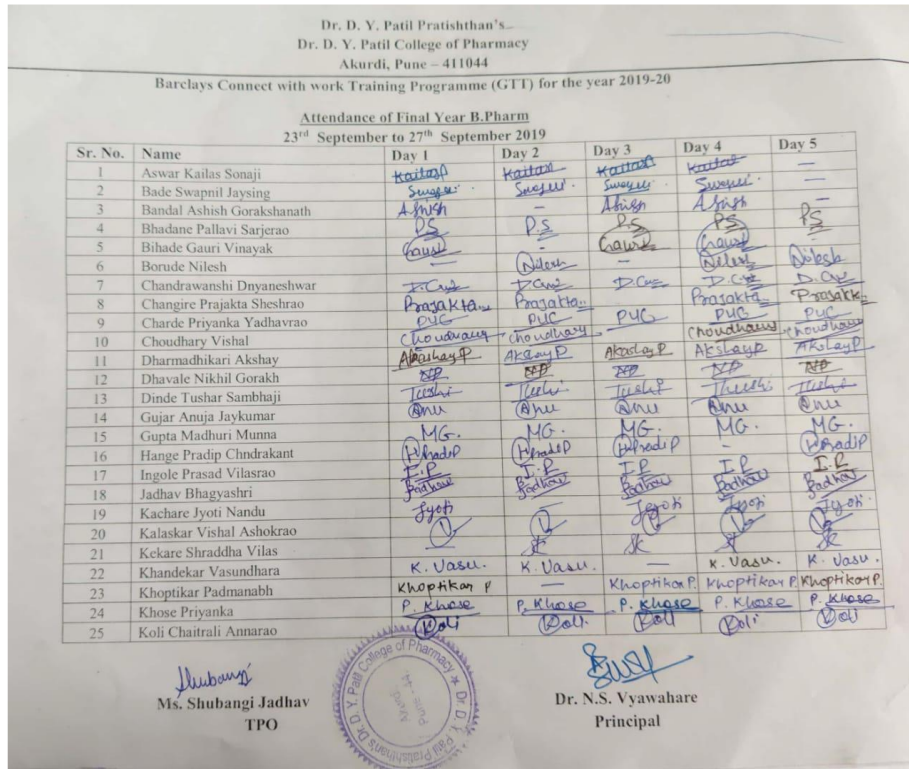 Dr. D. Y. Patil Pratishthan's
Dr. D. Y. Patil College of Pharmacy
Akurdi, Pune – 411044
Barclays Connect with work Training Programme (GTT) for the year 2019-20
Attendance of Final Year B.Pharm
23rd September to 27th September 2019
Sr. No. Name Day 1 Day 2 Day 3 Day 4 Day 5
1 Aswar Kailas Sonaji Kailas Kailas Kailas Kailas —
2 Bade Swapnil Jaysing —
3 Bandal Ashish Gorakshanath Ashish – Ashish Ashish –
4 Bhadane Pallavi Sarjerao PS P.S P.S PS PS
5 Bihade Gauri Vinayak Gauri - Gauri Gauri -
6 Borude Nilesh — Nilesh – Nilesh Nilesh
7 Chandrawanshi Dnyaneshwar
8 Changire Prajakta Sheshrao Prajakta Prajakta Prajakta Prajakta
9 Charde Priyanka Yadhavrao PYC PYC PYC PYC PYC
10 Choudhary Vishal Choudhary choudhary choudhary choudhary
11 Dharmadhikari Akshay Akashay P Akshay P Akashay P Akshay P Akshay P
12 Dhavale Nikhil Gorakh NP NP NP NP NP
13 Dinde Tushar Sambhaji Tushi Tushi Tushi Tushi Tushi
14 Gujar Anuja Jaykumar Anu Anu Anu Anu Anu
15 Gupta Madhuri Munna MG. MG. MG. MG. MG.
16 Hange Pradip Chndrakant HPradip HPradip HPradip - HPradip
17 Ingole Prasad Vilasrao I.P I.P I.P I.P I.P
18 Jadhav Bhagyashri
19 Kachare Jyoti Nandu Jyoti Jyoti Jyoti Jyoti
20 Kalaskar Vishal Ashokrao
21 Kekare Shraddha Vilas — SK SK SK SK
22 Khandekar Vasundhara K. Vasu. K. Vasu. — K. Vasu. K. Vasu.
23 Khoptikar Padmanabh Khoptikar P — Khoptikar P. Khoptikar P. Khoptikar P.
24 Khose Priyanka P. Khose P. Khose P. Khose P. Khose P. Khose
25 Koli Chaitrali Annarao Koli Koli Koli Koli Koli
Shubangi
Ms. Shubangi Jadhav Dr. N.S. Vyawahare
TPO Principal
Dr. D. Y. Patil Pratishthan's Dr. D. Y. Patil College of Pharmacy
Akurdi
Pune - 44